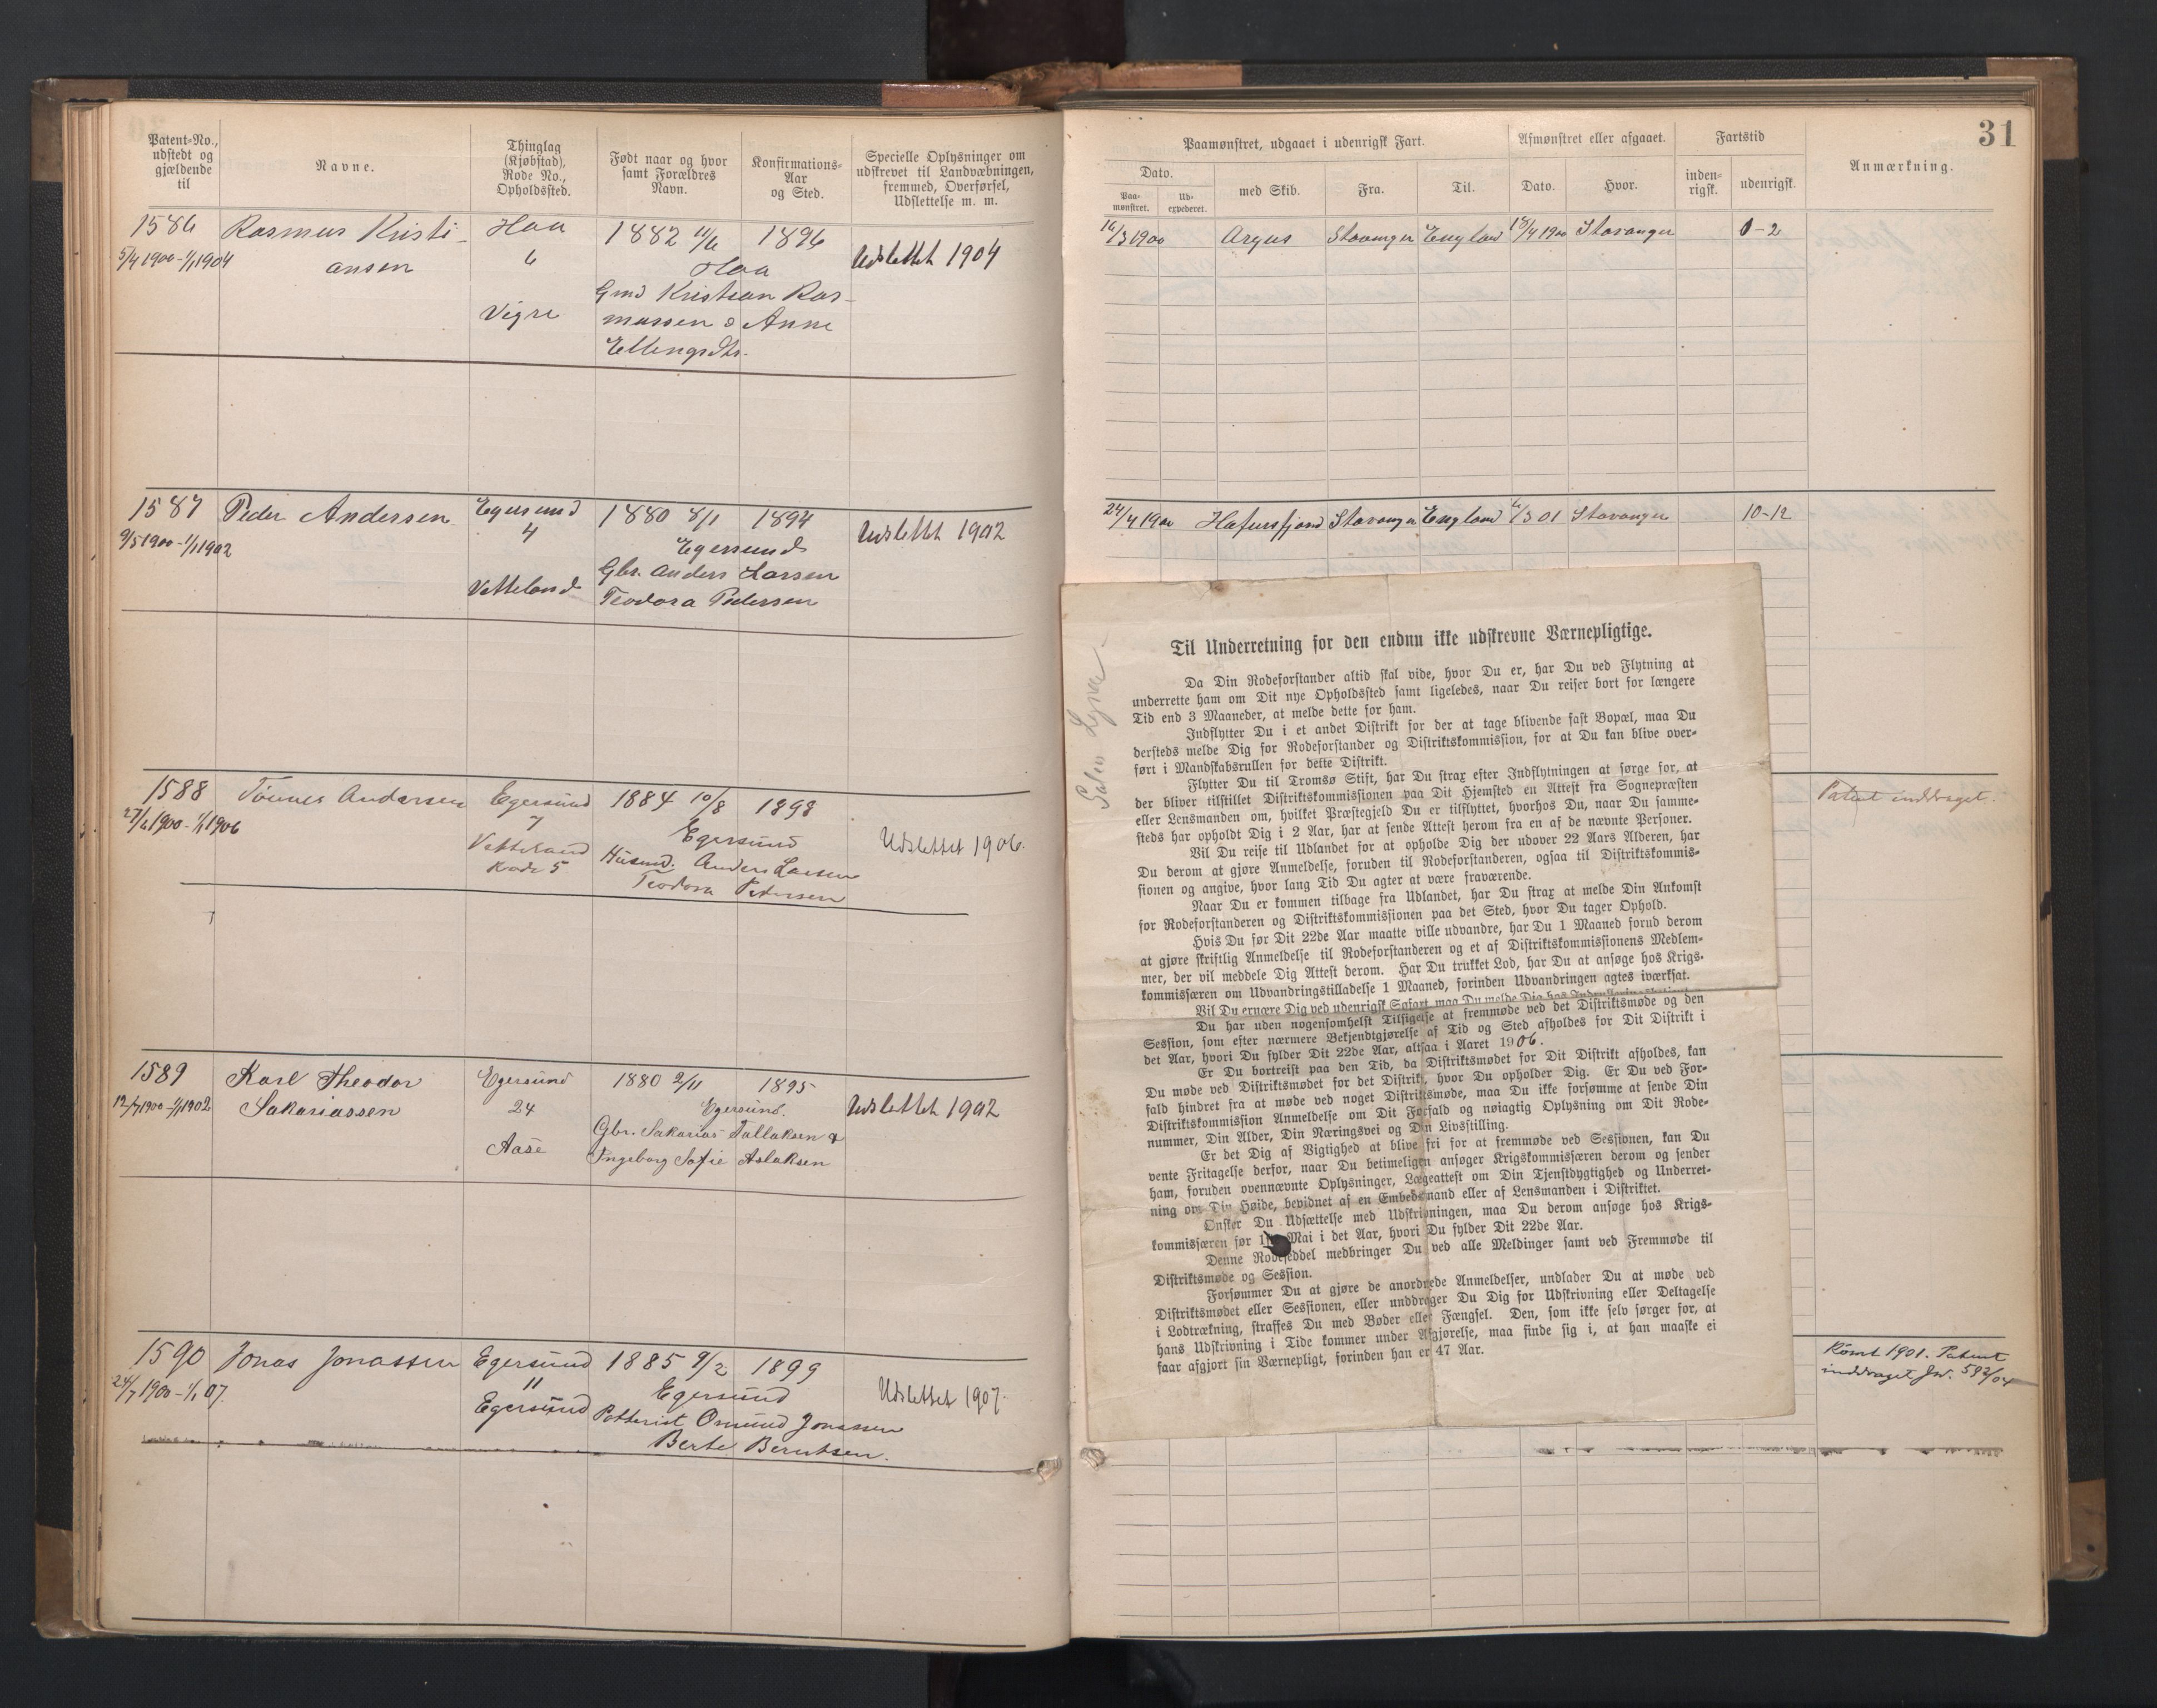 Patent-No., udstedt og gjældende til
Navne.
Thinglag (Kjøbstad), Rode No., Opholdssted.
Født naar og hvor samt Forældres Navn.
Konfirmations-Aar og Sted.
Specielle Oplysninger om udskrevet til Landvæbningen, fremmed, Overførsel, Udslettelse m. m.
1586 Rasmus Kristi- Haa 1882 11/6 1896
5/4 1900 - 1/1 1904 ansen 6 Haa Udslettet 1904
Gmd Kristian Ras-
Vigre mussen & Anne
Ellingsdtr.
1587 Peder Andersen Egersund 1880 8/11 1894 Udslettet 1902
9/5 1900 - 1/1 1902 4 Egersund
Gbr. Anders Larsen
Vetteland Teodora Pedersen
1588 Tönnes Andersen Egersund 1884 10/8 1898
27/6 1900 - 1/1 1906 7 Egersund
Vetteland Husmd. Anders Larsen Udslettet 1906.
Rode 5 Teodora Pedersen
1589 Karl Theodor Egersund 1880 2/11 1895
12/7 1900 - 1/1 1902 Sakariassen 24 Egersund. Udslettet 1902
Gbr. Sakarias Tallaksen &
Aase Ingeborg Sofie Aslaksen
1590 Jonas Jonassen Egersund 1885 9/2 1899
24/7 1900 - 1/1 07. 11 Egersund Udslettet 1907.
Egersund Potterist Omund Jonassen
Berte Berntsen.
31
Paamønstret, udgaaet i udenrigsk Fart.
Afmønstret eller afgaaet.
Fartstid
Anmærkning.
Dato.
Paa-mønstret.
Ud-expederet.
med Skib.
Fra.
Til.
Dato.
Hvor.
inden-rigsk.
udenrigsk.
16/3 1900 Argus Stavanger England 18/4 1900 Stavanger 0-2
24/4 1900 Hafursfjord Stavanger England 6/3 01 Stavanger 10-12
Patent inddraget.
Kömt 1901. Patent
inddraget Jw. 592/04
Til Underretning for den endnu ikke udskrevne Værnepligtige.
Da Din Rodeforstander altid skal vide, hvor Du er, har Du ved Flytning at
underrette ham om Dit nye Opholdssted samt ligeledes, naar Du reiser bort for længere
Tid end 3 Maaneder, at melde dette for ham.
Indflytter Du i et andet Distrikt for der at tage blivende fast Bopæl, maa Du
dersteds melde Dig for Rodeforstander og Distriktskommission, for at Du kan blive over-
ført i Mandskabsrullen for dette Distrikt.
Flytter Du til Tromsø Stift, har Du strax efter Indflytningen at sørge for, at
der bliver tilstillet Distriktskommissionen paa Dit Hjemsted en Attest fra Sognepræsten
eller Lensmanden om, hvilket Præstegjeld Du er tilflyttet, hvorhos Du, naar Du samme-
steds har opholdt Dig i 2 Aar, har at sende Attest herom fra en af de nævnte Personer.
Vil Du reise til Udlandet for at opholde Dig der udover 22 Aars Alderen, har
Du derom at gjøre Anmeldelse, foruden til Rodeforstanderen, ogsaa til Distriktskommis-
sionen og angive, hvor lang Tid Du agter at være fraværende.
Naar Du er kommen tilbage fra Udlandet, har Du strax at melde Din Ankomst
for Rodeforstanderen og Distriktskommissionen paa det Sted, hvor Du tager Ophold.
Hvis Du før Dit 22de Aar maatte ville udvandre, har Du 1 Maaned forud derom
at gjøre skriftlig Anmeldelse til Rodeforstanderen og et af Distriktskommissionens Medlem-
mer, der vil meddele Dig Attest derom. Har Du trukket Lod, har Du at ansøge hos Krigs-
kommissæren om Udvandringstilladelse 1 Maaned, forinden Udvandringen agtes iværksat.
Vil Du ernære Dig ved udenrigsk Søfart maa Du melde Dig hos
Du har uden nogensomhelst Tilsigelse at fremmøde ved det Distriktsmøde og den
Session, som efter nærmere Bekjendtgjørelse af Tid og Sted afholdes for Dit Distrikt i
det Aar, hvori Du fylder Dit 22de Aar, altsaa i Aaret 1906.
Er Du bortreist paa den Tid, da Distriktsmødet for Dit Distrikt afholdes, kan
Du møde ved Distriktsmødet for det Distrikt, hvor Du opholder Dig. Er Du ved For-
fald hindret fra at møde ved noget Distriktsmøde, maa Du ikke forsømme at sende Din
Distriktskommission Anmeldelse om Dit Forfald og nøiagtig Oplysning om Dit Rode-
nummer, Din Alder, Din Næringsvei og Din Livsstilling.
Er det Dig af Vigtighed at blive fri for at fremmøde ved Sessionen, kan Du
vente Fritagelse derfor, naar Du betimeligen ansøger Krigskommissæren derom og sender
ham, foruden ovennævnte Oplysninger, Lægeattest om Din Tjenstdygtighed og Underret-
ning om Din Høide, bevidnet af en Embedsmand eller af Lensmanden i Distriktet.
Ønsker Du Udsættelse med Udskrivningen, maa Du derom ansøge hos Krigs-
kommissæren før Mai i det Aar, hvori Du fylder Dit 22de Aar.
Denne Rodeseddel medbringer Du ved alle Meldinger samt ved Fremmøde til
Distriktsmøde og Session.
Forsømmer Du at gjøre de anordnede Anmeldelser, undlader Du at møde ved
Distriktsmødet eller Sessionen, eller unddrager Du Dig for Udskrivning eller Deltagelse
i Lodtrækning, straffes Du med Bøder eller Fængsel. Den, som ikke selv sørger for, at
hans Udskrivning i Tide kommer under Afgjørelse, maa finde sig i, at han maaske ei
faar afgjort sin Værnepligt, forinden han er 47 Aar.